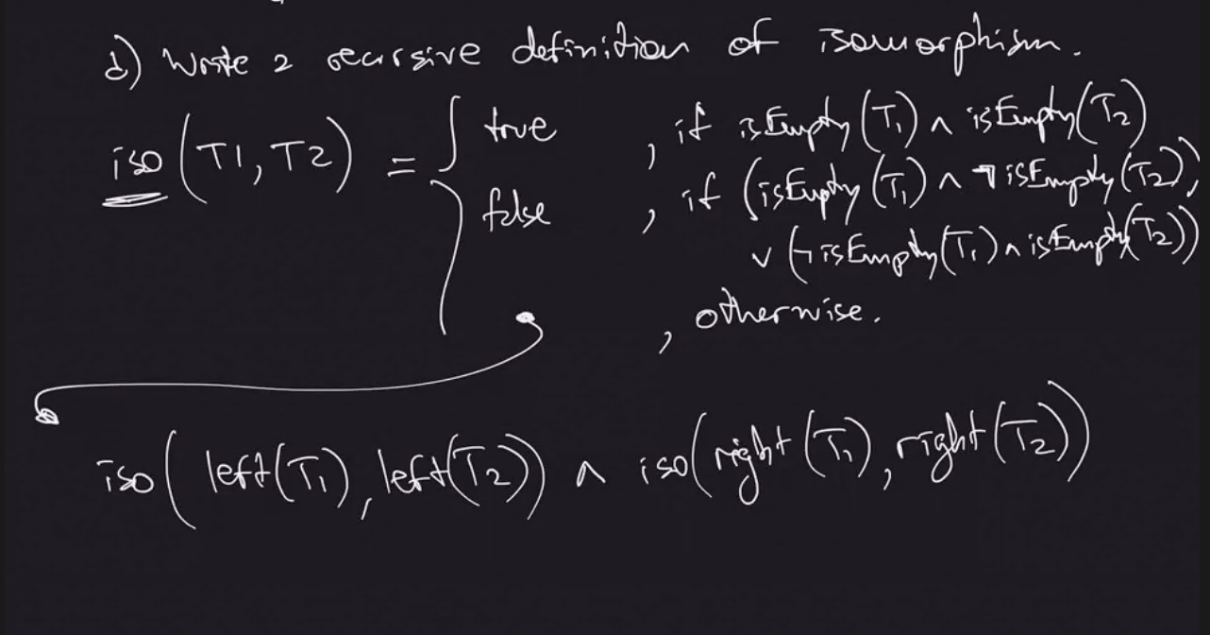 d) Write a recursive definition of isomorphism.
iso(T1, T2) = { true , if isEmpty(T₁) ∧ isEmpty(T₂)
false , if (isEmpty(T₁) ∧ ¬isEmpty(T₂))
∨ (¬isEmpty(T₁) ∧ isEmpty(T₂))
, otherwise.
iso(left(T₁), left(T₂)) ∧ iso(right(T₁), right(T₂))